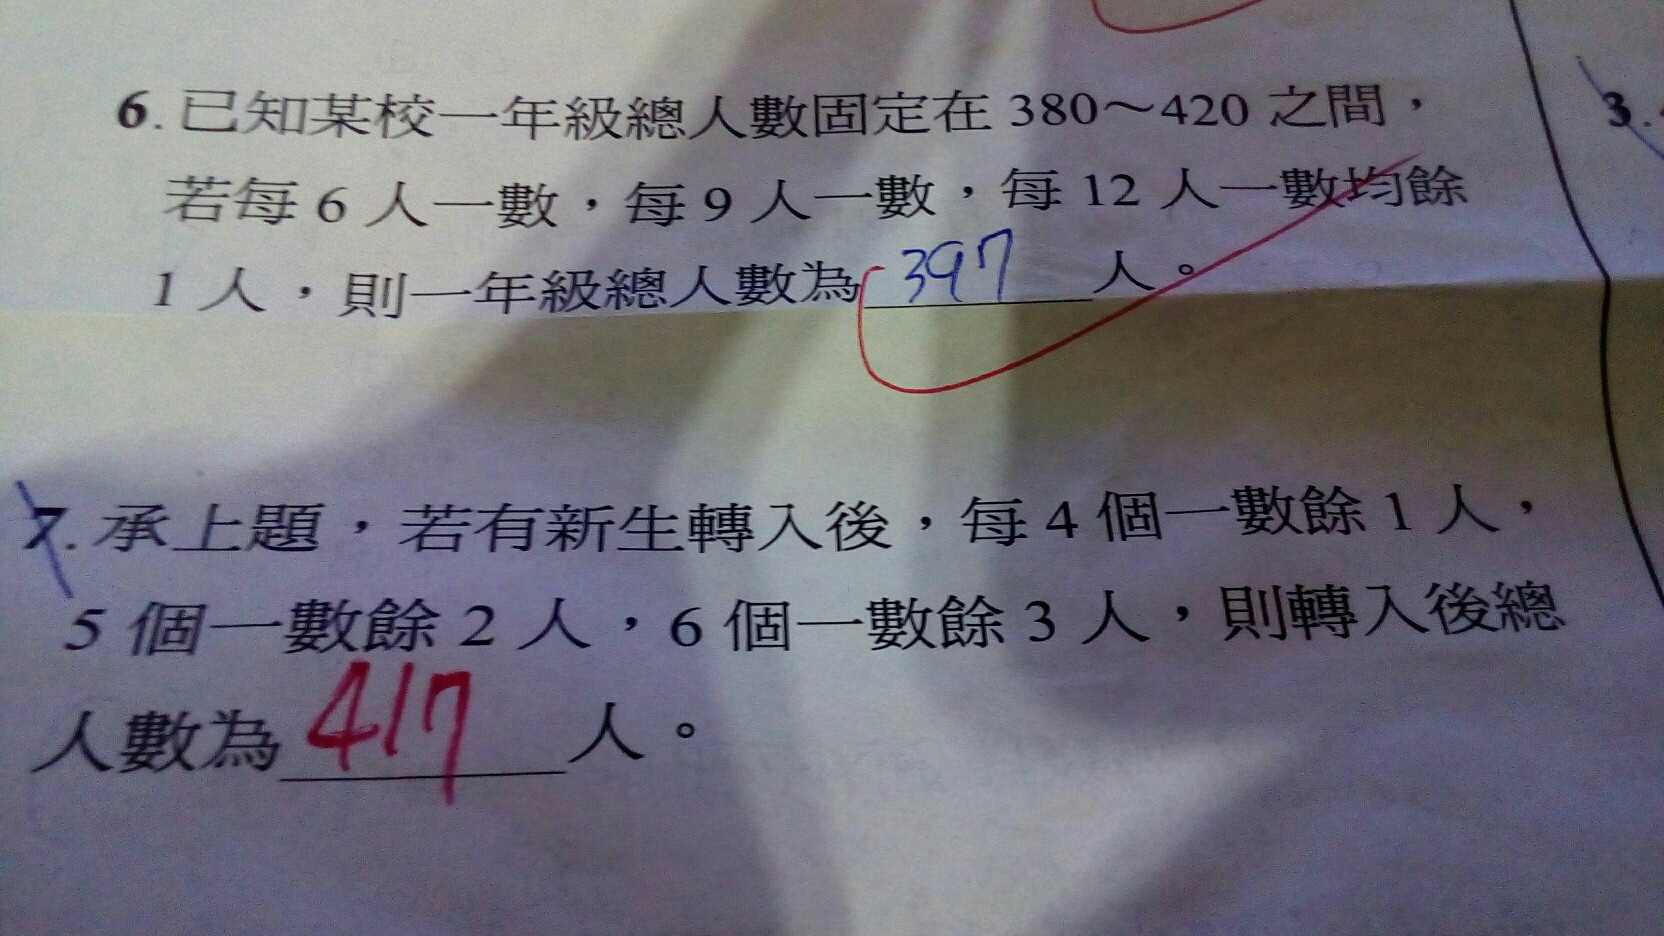 6. 已知某校一年級總人數固定在 380～420 之間，
若每 6 人一數，每 9 人一數，每 12 人一數均餘
1 人，則一年級總人數為 397 人。
7. 承上題，若有新生轉入後，每 4 個一數餘 1 人，
5 個一數餘 2 人，6 個一數餘 3 人，則轉入後總
人數為 417 人。
3.